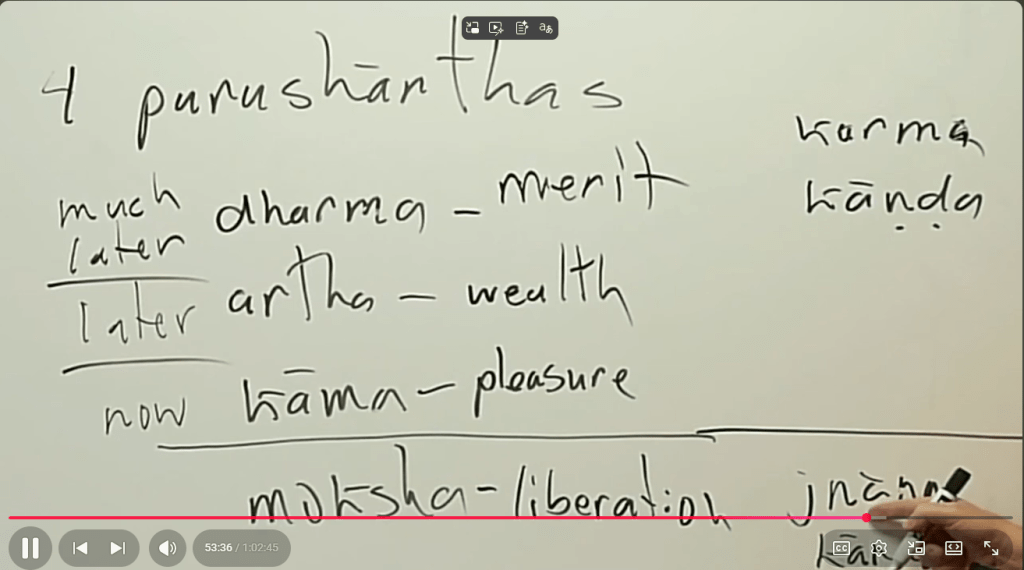 4 purushārthas
karma
kāṇḍa
much
later
dharma - merit
later
artha - wealth
now
kāma - pleasure
moksha - liberation
jnāna
53:36 / 1:02:45